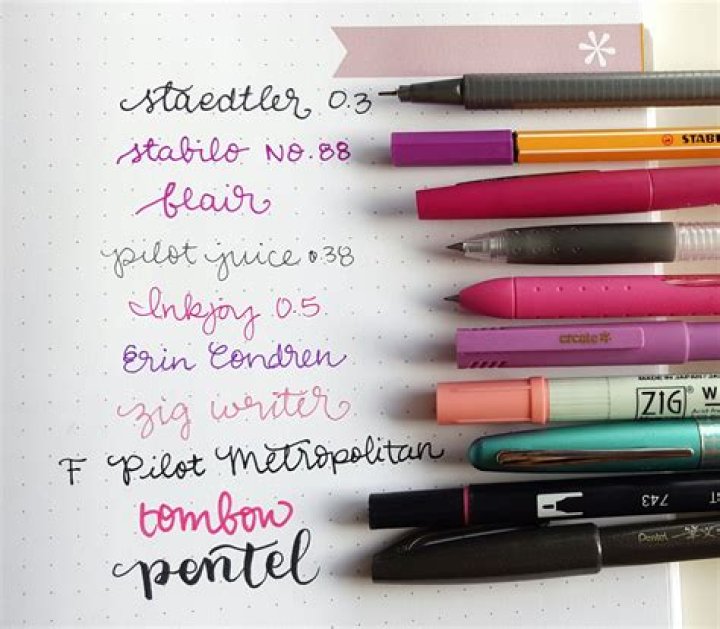 staedtler 0.3
stabilo NO.88
STABI
flair
pilot juice 0.38
Inkjoy 0.5
Erin Condren
create
zig writer
ZIG W
F Pilot Metropolitan
tombow
743
pentel
Pentel